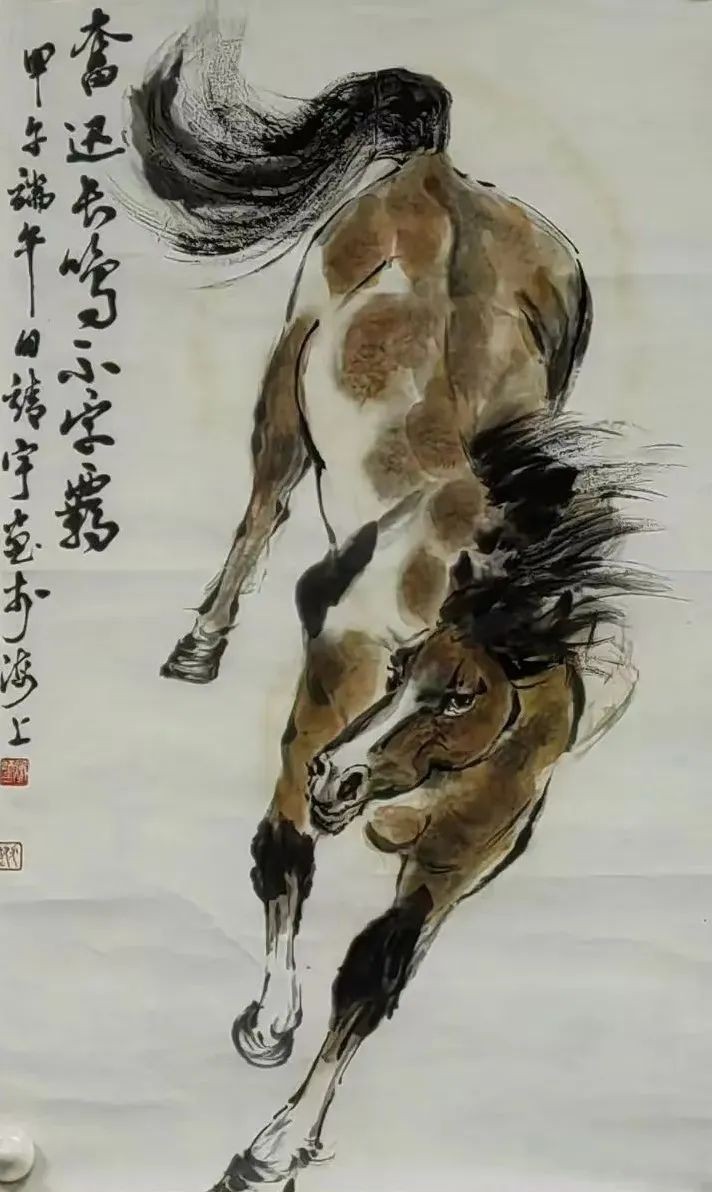 奋迅长鸣不受羁
甲午端午日靖宇画於海上